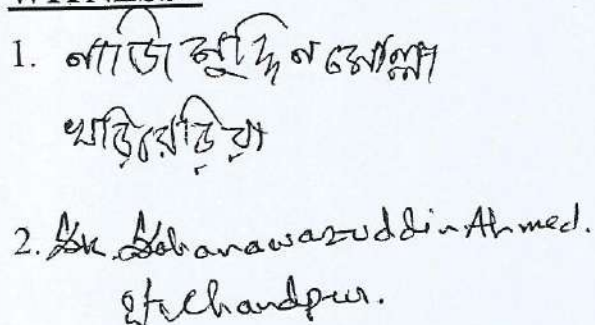 1. নাজিমুদ্দিন মোল্লা
খড়িবেড়িয়া
2. Sk. Sahanawazuddin Ahmed.
Chandpur.